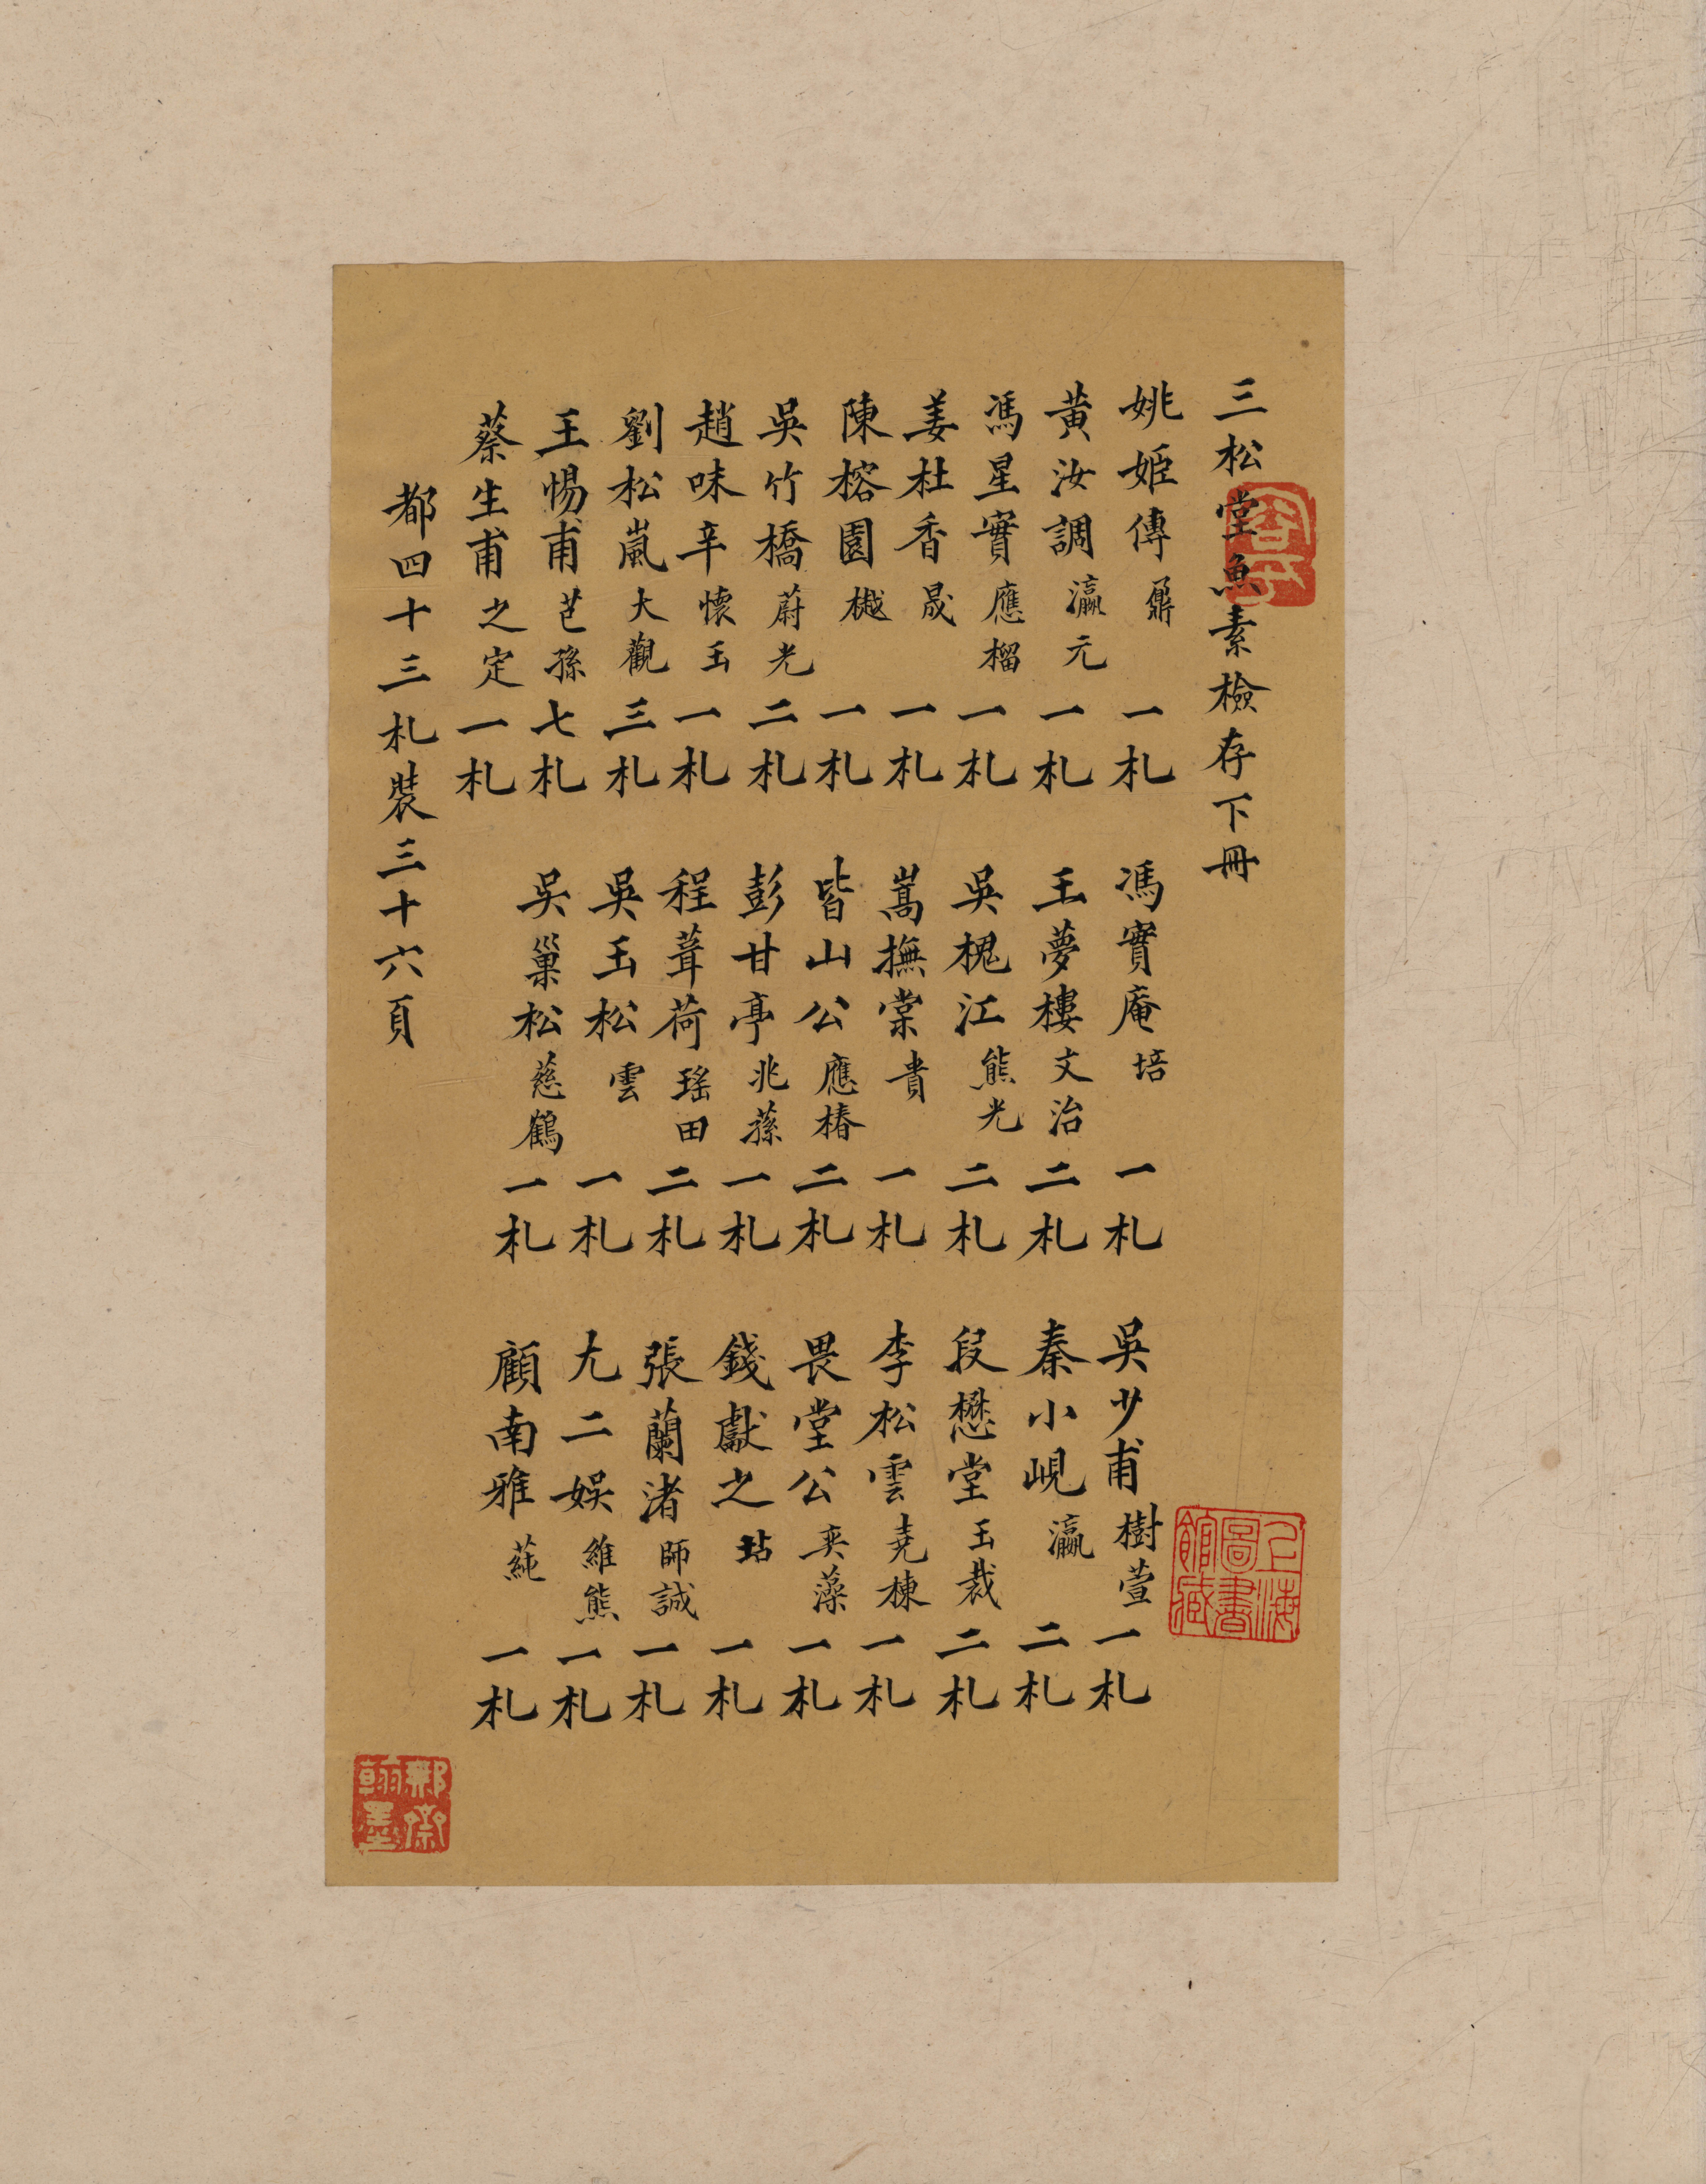 三松堂魚素檢存下冊
姚姬傳 鼐 一札
黃汝調 瀛元 一札
馮星實 應榴 一札
姜杜香 晟 一札
陳榕園 樾 一札
吳竹橋 蔚光 二札
趙味辛 懷玉 一札
劉松嵐 大觀 三札
王惕甫 芑孫 七札
蔡生甫 之定 一札
馮實庵 培 一札
王夢樓 文治 二札
吳槐江 熊光 二札
嵩撫棠 貴 一札
皆山公 應椿 二札
彭甘亭 兆蓀 一札
程葺荷 瑤田 二札
吳玉松 雲 一札
吳巢松 慈鶴 一札
吳少甫 樹萱 一札
秦小峴 瀛 二札
段懋堂 玉裁 二札
李松雲 堯棟 一札
畏堂公 奕藻 一札
錢獻之 坫 一札
張蘭渚 師誠 一札
尤二娛 維熊 一札
顧南雅 蒓 一札
都四十三札裝三十六頁
上海圖書館藏
鄭齋翰墨